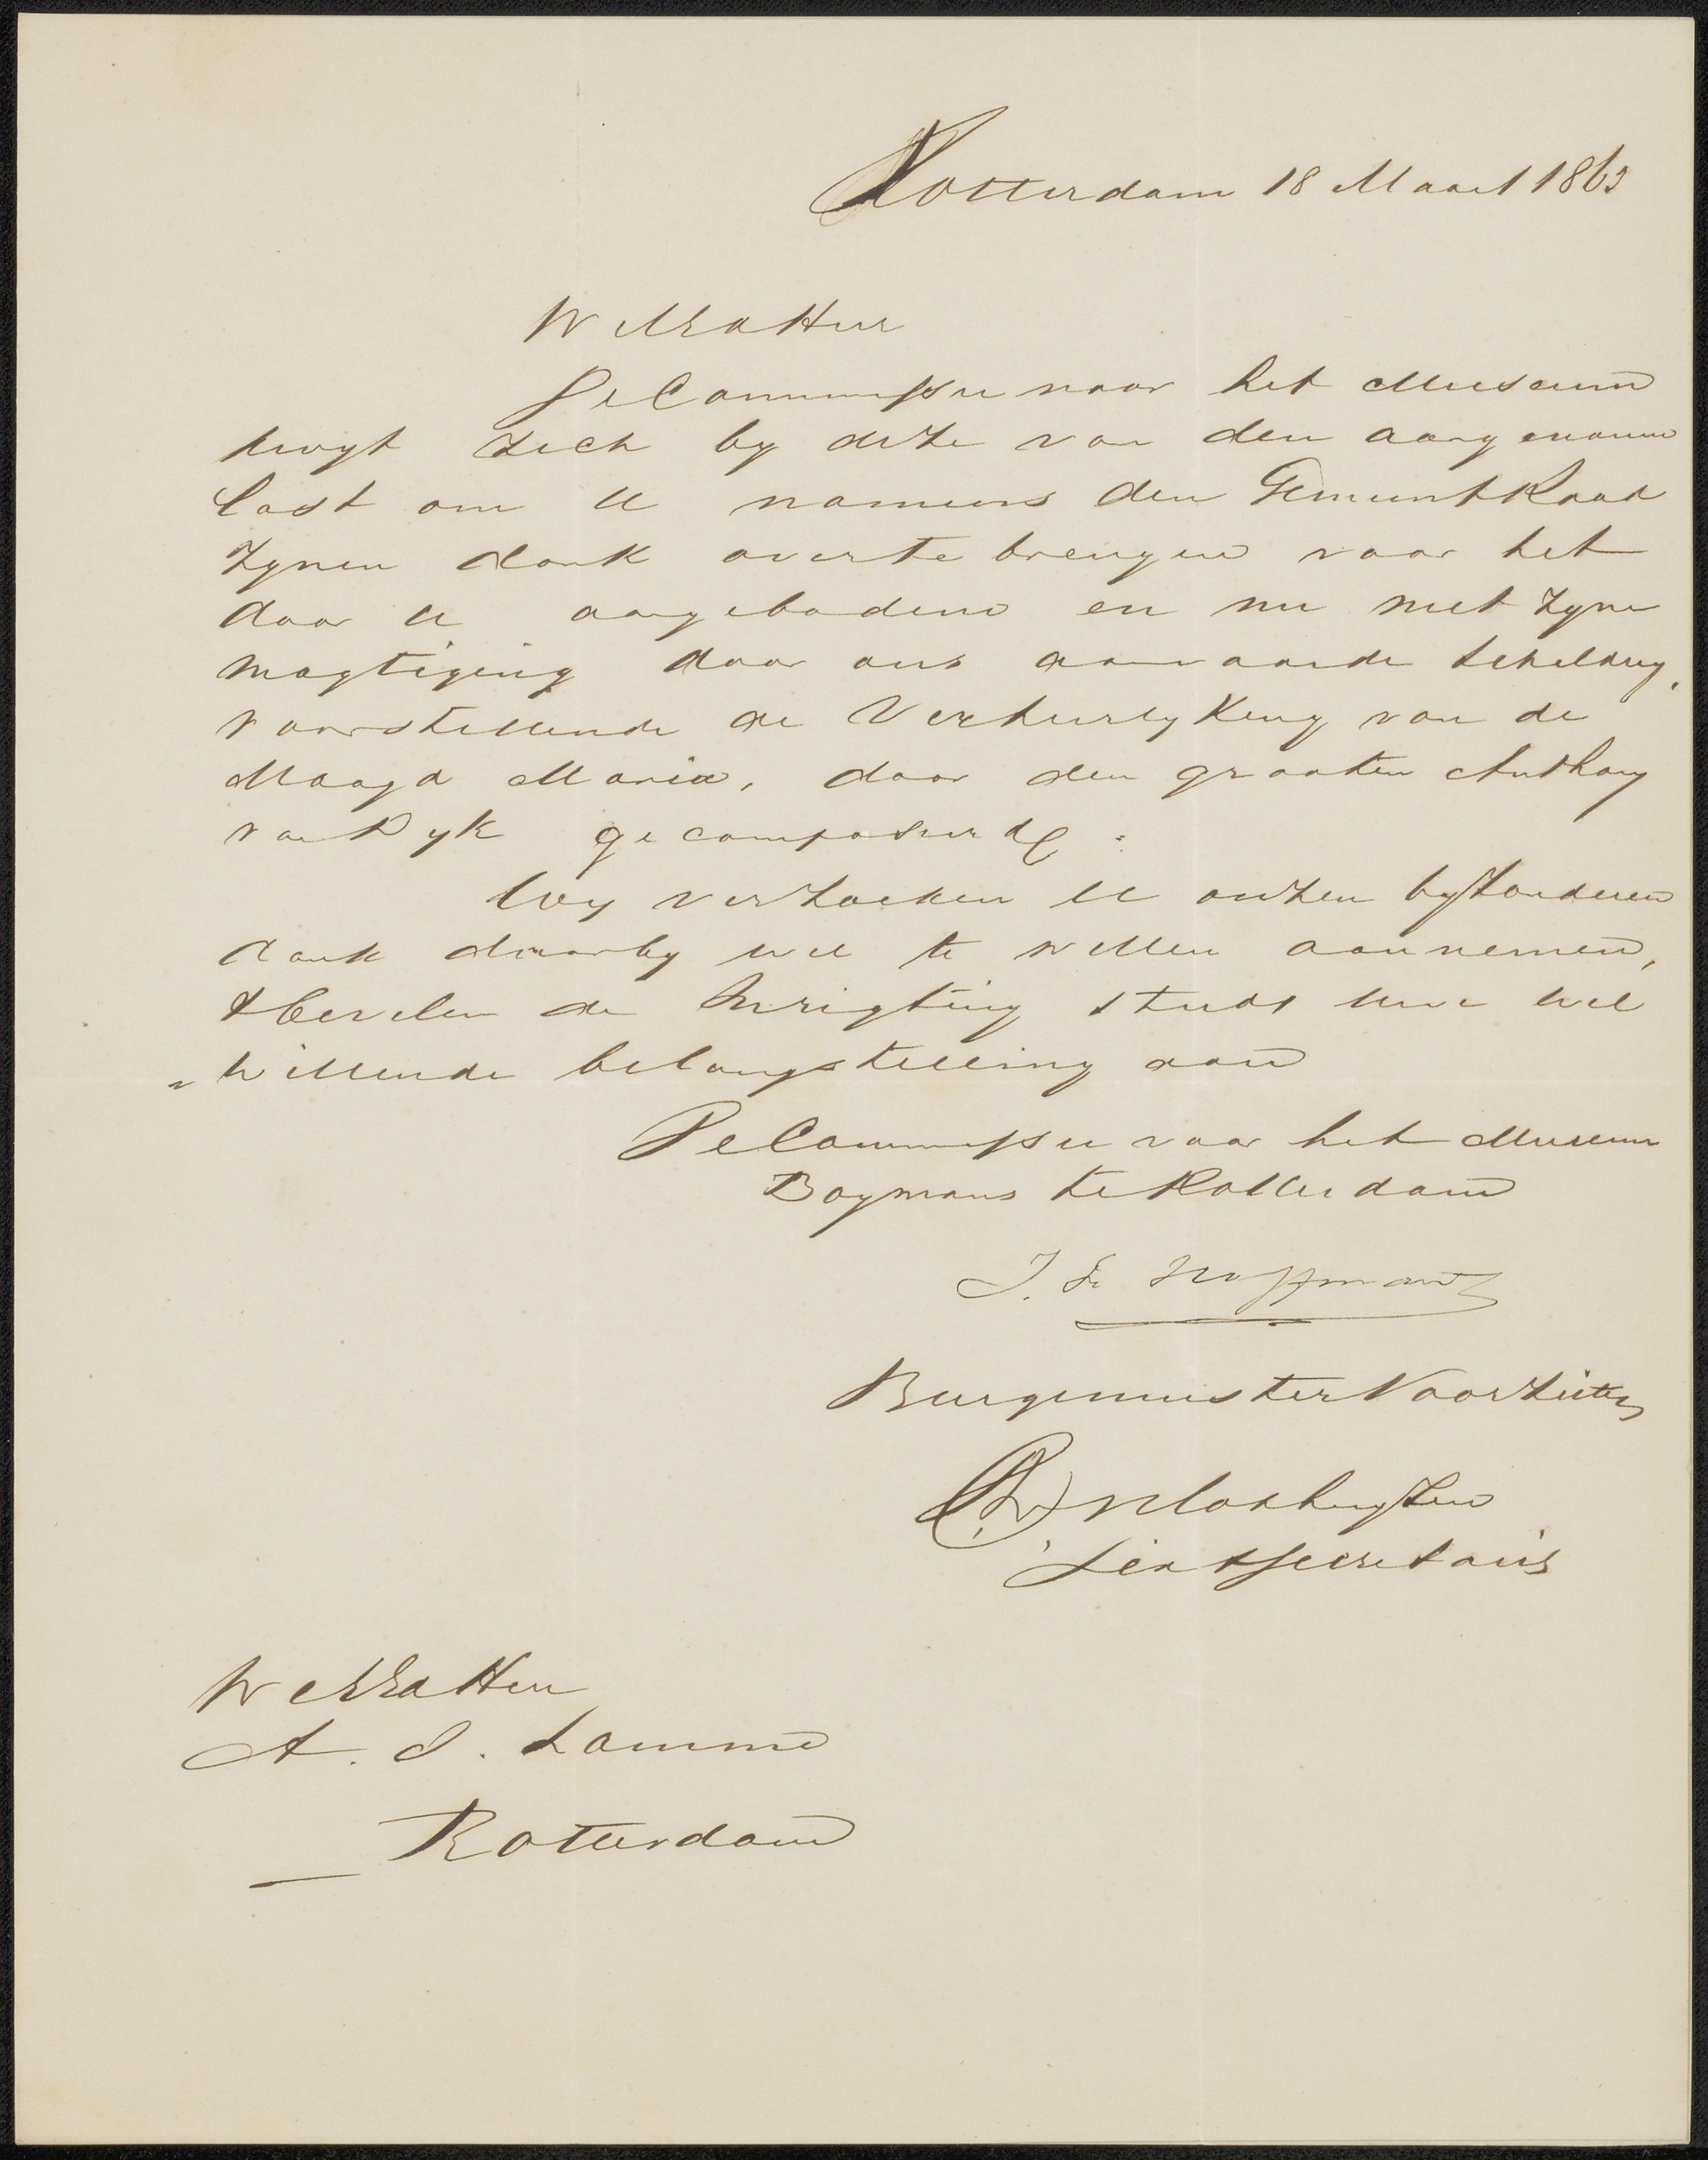 Rotterdam 18 Maart 1863
WelEd Heer
De Commissie voor het Museum
kwyt zich by deze van den aangenamen
last om U namens den GemeentRaad
zynen dank overtebrengen voor het
door U aangebodene en nu met zyne
magtiging door ons aanvaarde schildery,
voorstellende de Verheerlyking van de
Maagd Maria, door den grooten Anthony
van Dyk gecomponeerd.
Wy verzoeken U onzen byzonderen
dank daarby wel te willen aannemen,
& bevelen de Inrigting steeds uwe wel
"willende belangstelling aan
De Commissie voor het Museum
Boymans te Rotterdam
J. F. Hoffman
Burgemeester Voorzitter
Lid & Secretaris
WelEd Heer
A. J. Lamme
Rotterdam